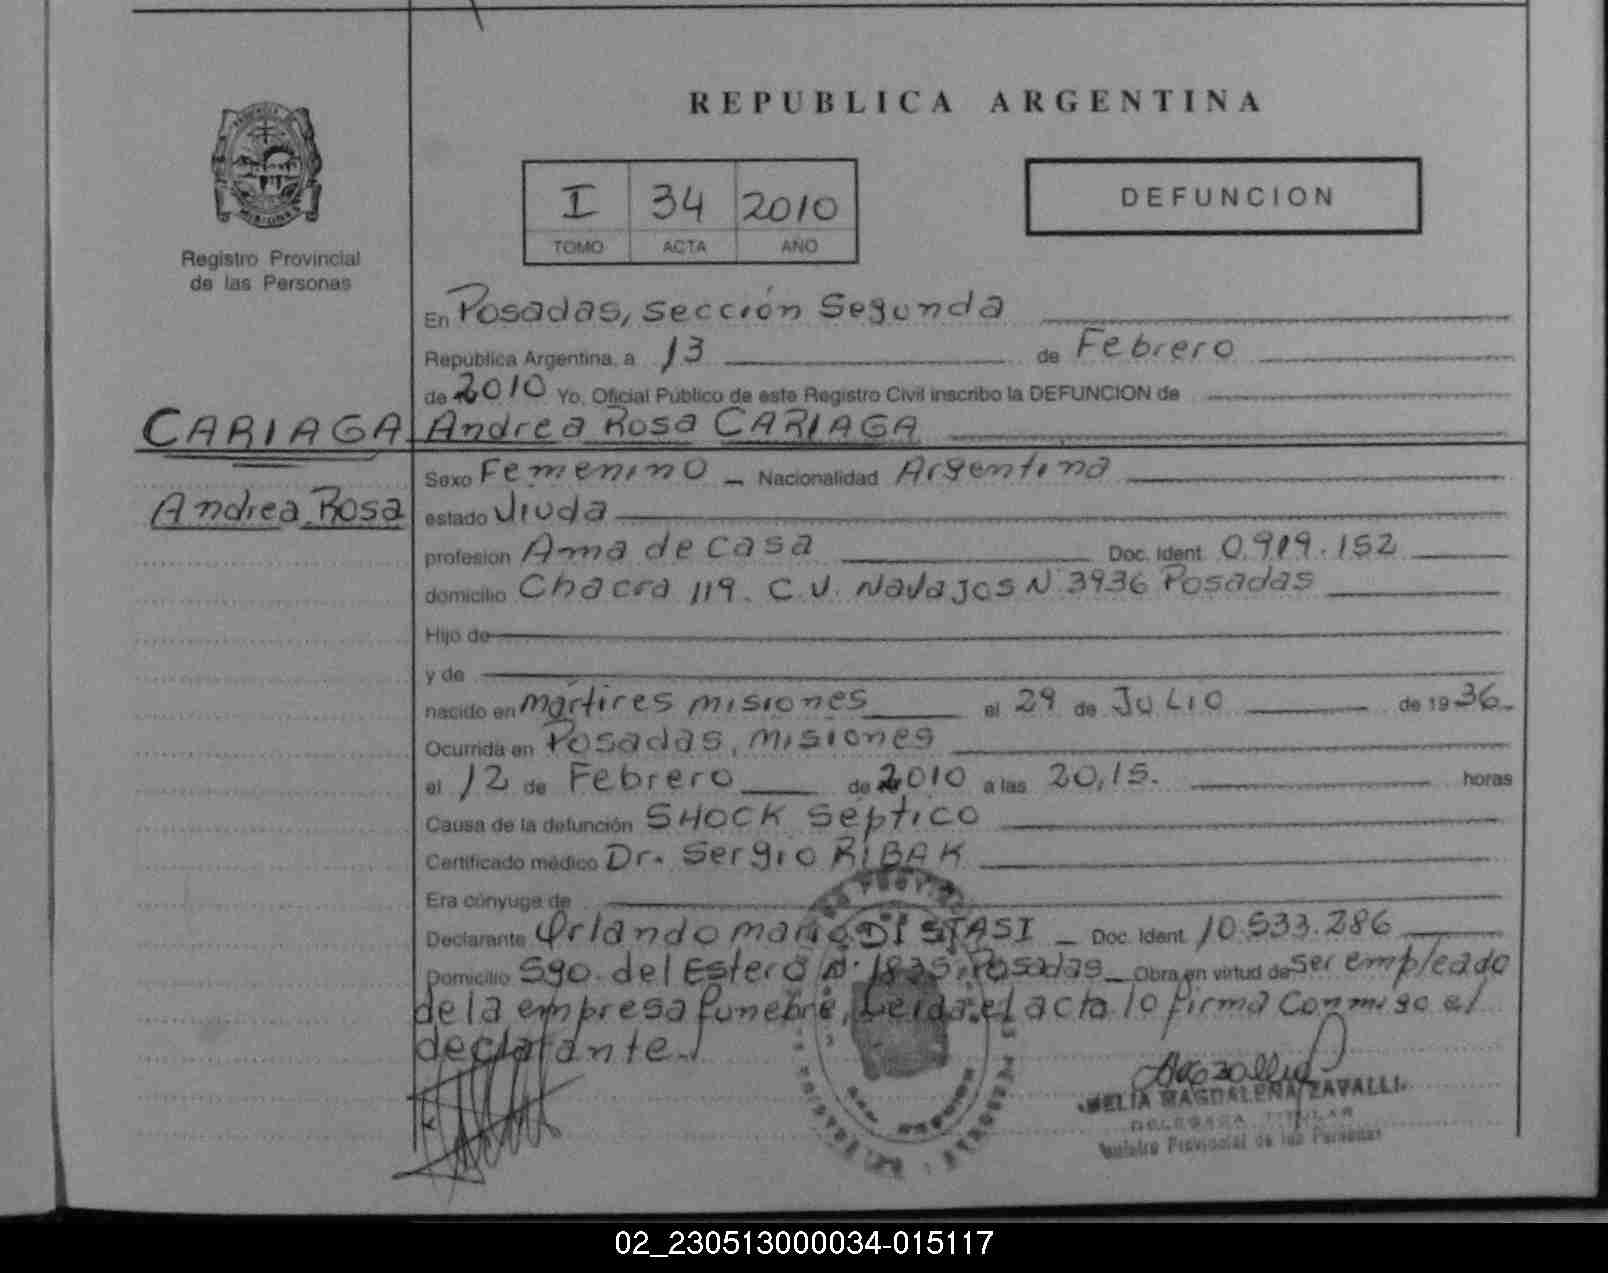 REPUBLICA ARGENTINA
I 34 2010
TOMO ACTA AÑO
DEFUNCION
Registro Provincial
de las Personas
En Posadas, sección Segunda
República Argentina, a 13 de Febrero
de 2010 Yo, Oficial Público de este Registro Civil inscribo la DEFUNCION de
CARIAGA Andrea Rosa CARIAGA
Sexo Femenino - Nacionalidad Argentina
Andrea Rosa estado Viuda
profesion Ama de casa Doc. Ident. 0.919.152
domicilio Chacra 119. C.V. Navajos N 3936 Posadas
Hijo de
y de
nacido en mártires misiones el 29 de JULIO de 1936
Ocurrida en Posadas, misiones
el 12 de Febrero de 2010 a las 20,15. horas
Causa de la defunción SHOCK séptico
Certificado médico Dr. Sergio RIBAK
Era cónyuge de
Declarante Orlando mario DI STASI - Doc. Ident. 10.533.286
Domicilio Sgo. del Estero N° 1835, Posadas - Obra en virtud de ser empleado
de la empresa funebre, Leida el acta lo firma conmigo el
declarante.
MAGDALENA ZAVALLI
DELEGADA TITULAR
Registro Provincial de las Personas
02_230513000034-015117